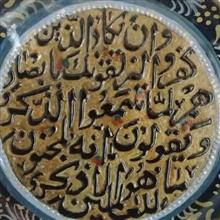 وان یکاد الذین
کفروا لیزلقونک بابصار
هم لما سمعوا الذکر
و یقولون انه لمجنون
وما هو الا ذکر